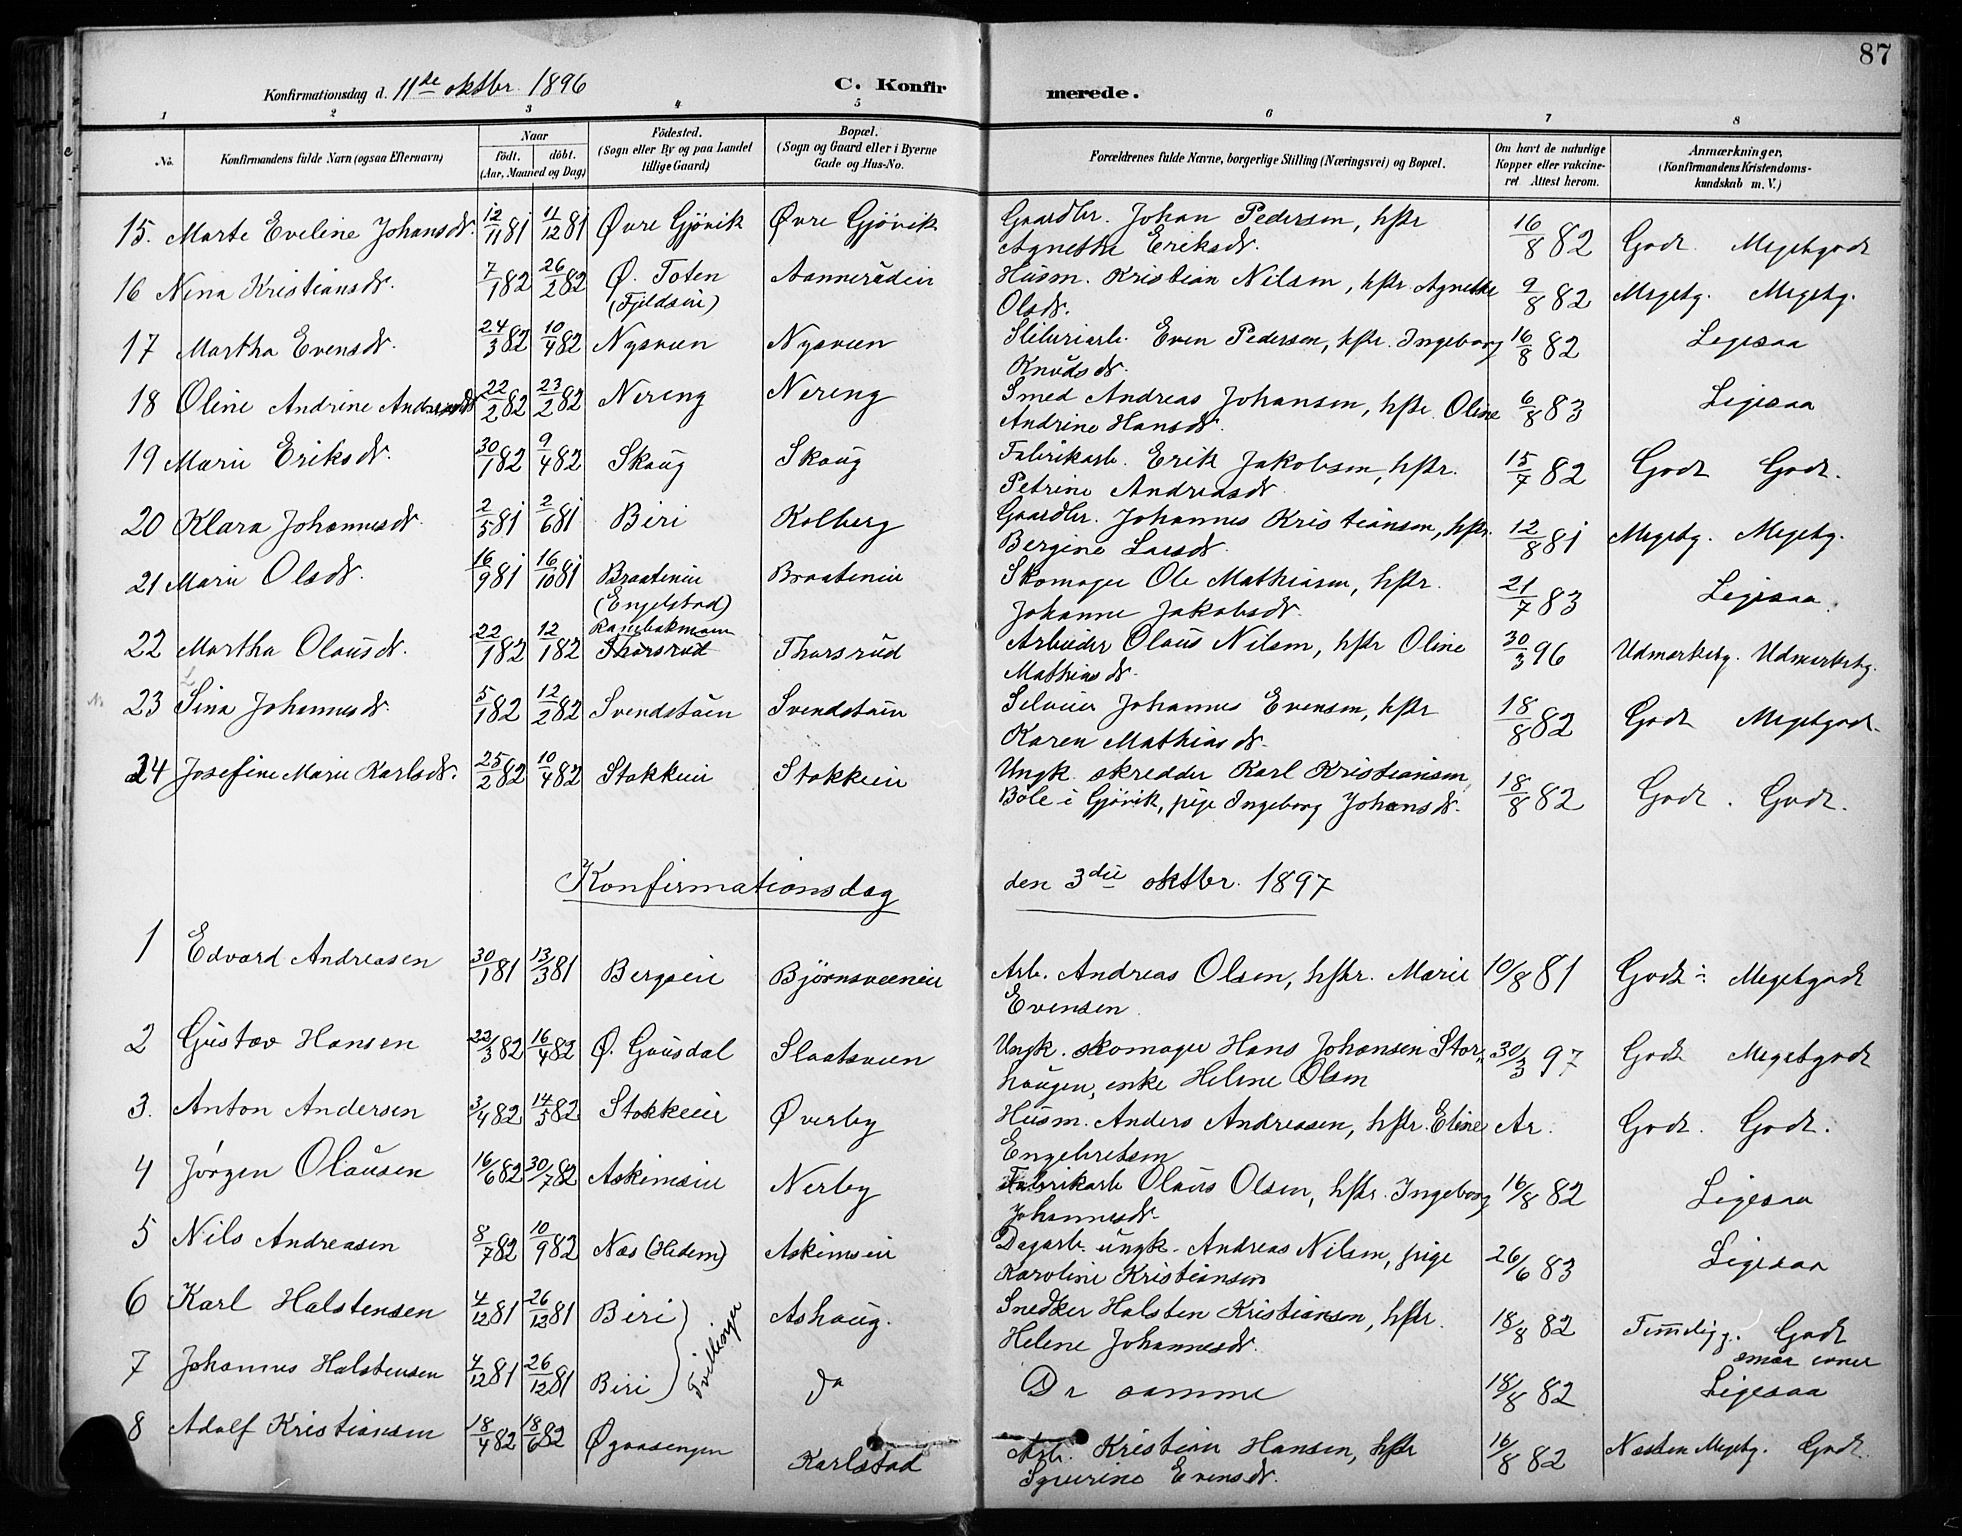 87
Konfirmationsdag d. 11te oktbr. 1896 C. Konfir merede.
1 2 3 4 5 6 7 8
No. Konfirmandens fulde Navn (ogsaa Efternavn) Naar født. døbt. (Aar, Maaned og Dag) Födested. (Sogn eller By og paa Landet tillige Gaard) Bopæl. (Sogn og Gaard eller i Byerne Gade og Hus-No. Forældrenes fulde Navne, borgerlige Stilling (Næringsvei) og Bopæl. Om havt de naturlige Kopper eller vakcineret Attest herom. Anmærkninger, (Konfirmandens Kristendomskundskab m. V.)
15. Marte Eveline Johansdr. 12/11 81 11/12 81 Øvre Gjövik Øvre Gjövik Gaardbr. Johan Pedersen, hstr 16/8 82 Godt Megetgodt
Agnethe Eriksdr.
16 Nina Kristiansdr. 7/1 82 26/2 82 Ø. Toten Aannerudeie Husm. Kristian Nilsen, hstr. Agnethe 9/8 82 Megetg. Megetg.
(Fjeldseie) Olsdr.
17 Martha Evensdr. 24/3 82 10/4 82 Nysveen Nysveen Sliberiarb. Even Pedersen, hstr. Ingeborg 16/8 82 Ligesaa
Knudsdr.
18 Oline Andrine Andreasdr 22/2 82 23/2 82 Nereng Nereng Smed Andreas Johansen, hstr Oline 6/8 83 Ligesaa
Andrine Hansdr.
19 Marie Eriksdr. 30/1 82 9/4 82 Skaug Skaug Fabrikarb. Erik Jakobsen, hstr. 15/7 82 Godt Godt.
Petrine Andreasdr
20 Klara Johannesdr. 2/5 81 2/6 81 Biri Kolberg Gaardbr. Johannes Kristiansen, hstr. 12/8 81 Megetg. Megetg.
Bergine Larsdr.
21 Marie Olsdr. 16/9 81 16/10 81 Braateneie Braateneie Skomager Ole Mathiasen, hstr. 21/7 83 Ligesaa.
(Engelstad) Johanne Jakobsdr
22 Martha Olausdr. 22/1 82 12/1 82 Thorsrud Thorsrud Arbeider Olaus Nilsen, hstr Oline 30/3 96 Udmerketg. Udmerketg.
Mathiasdr.
23 Sina Johannesdr. 5/1 82 12/2 82 Svendstuen Svendstuen Seleier Johannes Evensen, hstr 18/8 82 Godt Megetgodt.
Karen Mathiasdr.
24 Josefine Marie Karlsdr. 25/2 82 10/4 82 Stokkeeie Stokkeeie Ungk. skredder Karl Kristiansen, 18/8 82 Godt. Godt.
Böle i Gjövik, pige Ingeborg Johansdr.
Konfirmationsdag den 3die oktbr. 1897
1 Edvard Andreasen 30/1 81 13/3 81 Bergseie Bjørnsveeneie Arb. Andreas Olsen, hstr. Marie 10/8 81 Godt÷ Megetgodt
Evensen
2 Gustav Hansen 22/3 82 16/4 82 Ø. Gausdal Slaatsveen Ungk. skomager Hans Johansen Stor- 30/3 97 Godt Megetgodt
haugen, enke Helene Olsen
3. Anton Andersen 3/4 82 14/5 82 Stokkeeie Øverby Husm. Anders Andreasen, hstr. Eline Ar. Godt. Godt.
Engebretsen
4 Jørgen Olausen 16/6 82 30/7 82 Askimseie Nerby Fabrikarb Olaus Olsen, hstr. Ingeborg 16/8 82 Ligesaa
Johannesdr.
5 Nils Andreasen 8/7 82 10/9 82 Næs (Hedem) Askimseie Dagarb. ungk. Andreas Nilsen, pige 26/6 83 Ligesaa
Karoline Kristiansen
6 Karl Halstensen 4/12 81 26/12 81 Biri Tvillinger Ashaug. Snedker Halsten Kristiansen, hstr. 18/8 82 Temmelig g. Godt
Helene Johannesdr. smaa evner
7 Johannes Halstensen 4/12 81 26/12 81 Biri do De samme 18/8 82 Ligesaa
8 Adolf Kristiansen 18/4 82 18/6 82 Øgaasengen Karlstad Arb. Kristian Hansen, hstr 16/8 82 Næsten Megetg. Godt.
Syverine Evensdr.